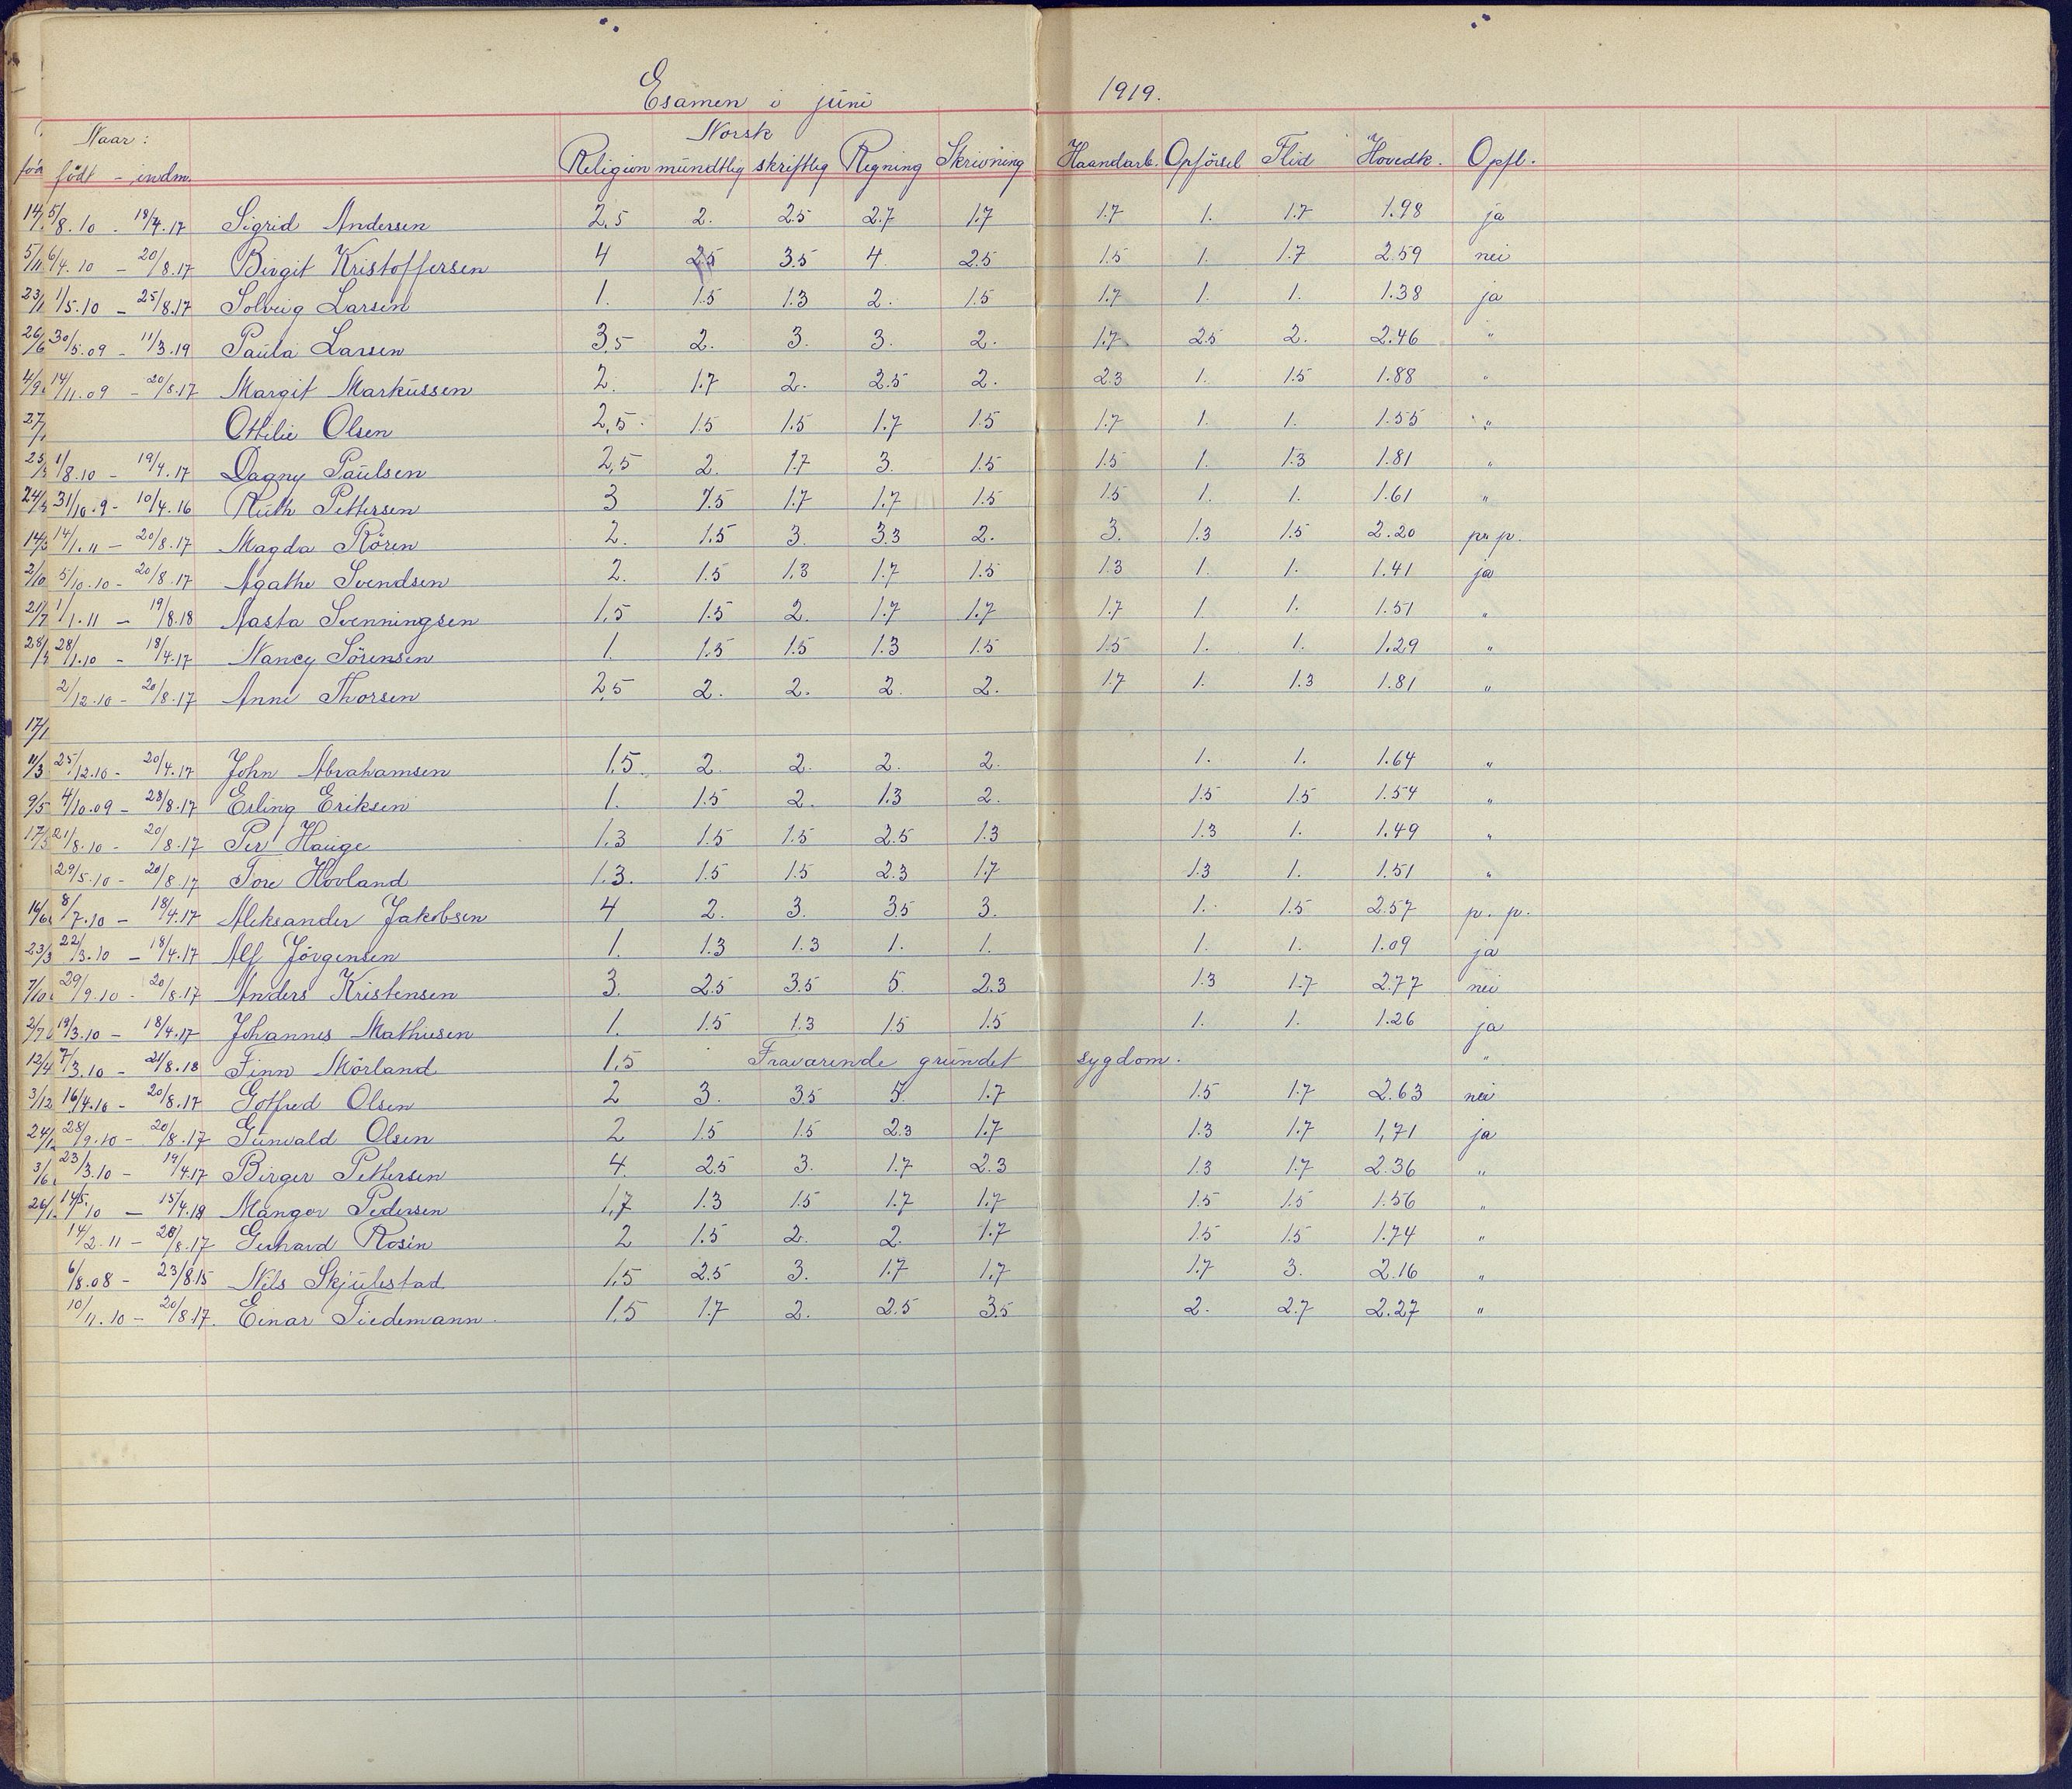 Esamen i juni 1919.
Naar: Norsk
født - indm. Religion mündtlig skriftlig Regning Skrivning Haandarb. Opførsel Flid Hovedk. Opfl.
5/8.10 - 18/4.17 Sigrid Andersen 2,5 2. 2.5 2.7 1.7 1.7 1. 1.7 1.98 ja
6/4.10 - 20/8.17 Birgit Kristoffersen 4 2.5 3.5 4 2.5 1.5 1. 1.7 2.59 nei
1/5.10 - 25/8.17 Solveig Larsen 1. 1.5 1.3 2. 1.5 1.7 1. 1. 1.38 ja
30/5.09 - 11/3.19 Paula Larsen 3,5 2. 3. 3. 2. 1.7 2.5 2. 2.46 "
14/11.09 - 20/8.17 Margit Markussen 2. 1.7 2. 2.5 2. 2.3 1. 1.5 1.88 "
Othilie Olsen 2,5 1.5 1.5 1.7 1.5 1.7 1. 1. 1.55 "
1/8.10 - 19/4.17 Dagny Paulsen 2,5 2. 1.7 3. 1.5 1.5 1. 1.3 1.81 "
31/10.9 - 10/4.16 Ruth Pettersen 3 1.5 1.7 1.7 1.5 1.5 1. 1. 1.61 "
14/1.11 - 20/8.17 Magda Rören 2. 1.5 3. 3.3 2. 3. 1.3 1.5 2.20 pr p.
5/10.10 - 20/8.17 Agathe Svendsen 2. 1.5 1.3 1.7 1.5 1.3 1. 1. 1.41 ja
1/1.11 - 19/8.18 Aasta Svenningsen 1,5 1.5 2. 1.7 1.7 1.7 1 1. 1.51 "
28/1.10 - 18/4.17 Nancy Sörensen 1. 1.5 1.5 1.3 1.5 1.5 1. 1. 1.29 "
2/12.10 - 20/8.17 Anne Thorsen 2,5 2. 2. 2. 2. 1.7 1. 1.3 1.81 "
25/12.10 - 20/4.17 John Abrahamsen 1,5. 2. 2. 2. 2. 1. 1. 1.64 "
4/10.09 - 28/8.17 Erling Eriksen 1. 1.5 2. 1.3 2. 1.5 1.5 1.54 "
21/8.10 - 20/8.17 Per Hauge 1,3 1.5 1.5 2.5 1.3 1.3 1. 1.49 "
29/5.10 - 20/8.17 Tore Hovland 1,3. 1.5 1.5 2.3 1.7 1.3 1. 1.51 "
8/7.10 - 18/4.17 Aleksander Jakobsen 4 2. 3. 3.5 3. 1. 1.5 2.57 p. p.
22/3.10 - 18/4.17 Alf Jörgensen 1. 1.3 1.3 1. 1. 1. 1. 1.09 ja
29/9.10 - 20/8.17 Anders Kristensen 3. 2.5 3.5 5. 2.3 1.3 1.7 2.77 nei
19/3.10 - 18/4.17 Johannes Mathiesen 1. 1.5 1.3 1.5 1.5 1. 1. 1.26 ja
7/3.10 - 21/8.18 Finn Mörland 1,5 Fraværende grundet sygdom. "
16/4.10 - 20/8.17 Gotfred Olsen 2 3. 3.5 5. 1.7 1.5 1.7 2.63 nei
28/9.10 - 20/8.17 Gunvald Olsen 2 1.5 1.5 2.3 1.7 1.3 1.7 1,71 ja
23/3.10 - 19/4.17 Birger Pettersen 4. 2.5 3. 1.7 2.3 1.3 1.7 2.36 "
14/5.10 - 15/4.18 Mangor Pedersen 1,7 1.3 1.5 1.7 1.7 1.5 1.5 1.56 "
14/2.11 - 20/8.17 Gerhard Rosin 2 1.5 2. 2. 1.7 1.5 1.5 1.74 "
6/8.08 - 23/8.15 Nils Skjulestad 1,5 2.5 3. 1.7 1.7 1.7 3. 2.16 "
10/11.10 - 20/8.17. Einar Tiedemann 1,5 1.7 2. 2.5 3.5 2. 2.7 2.27 "